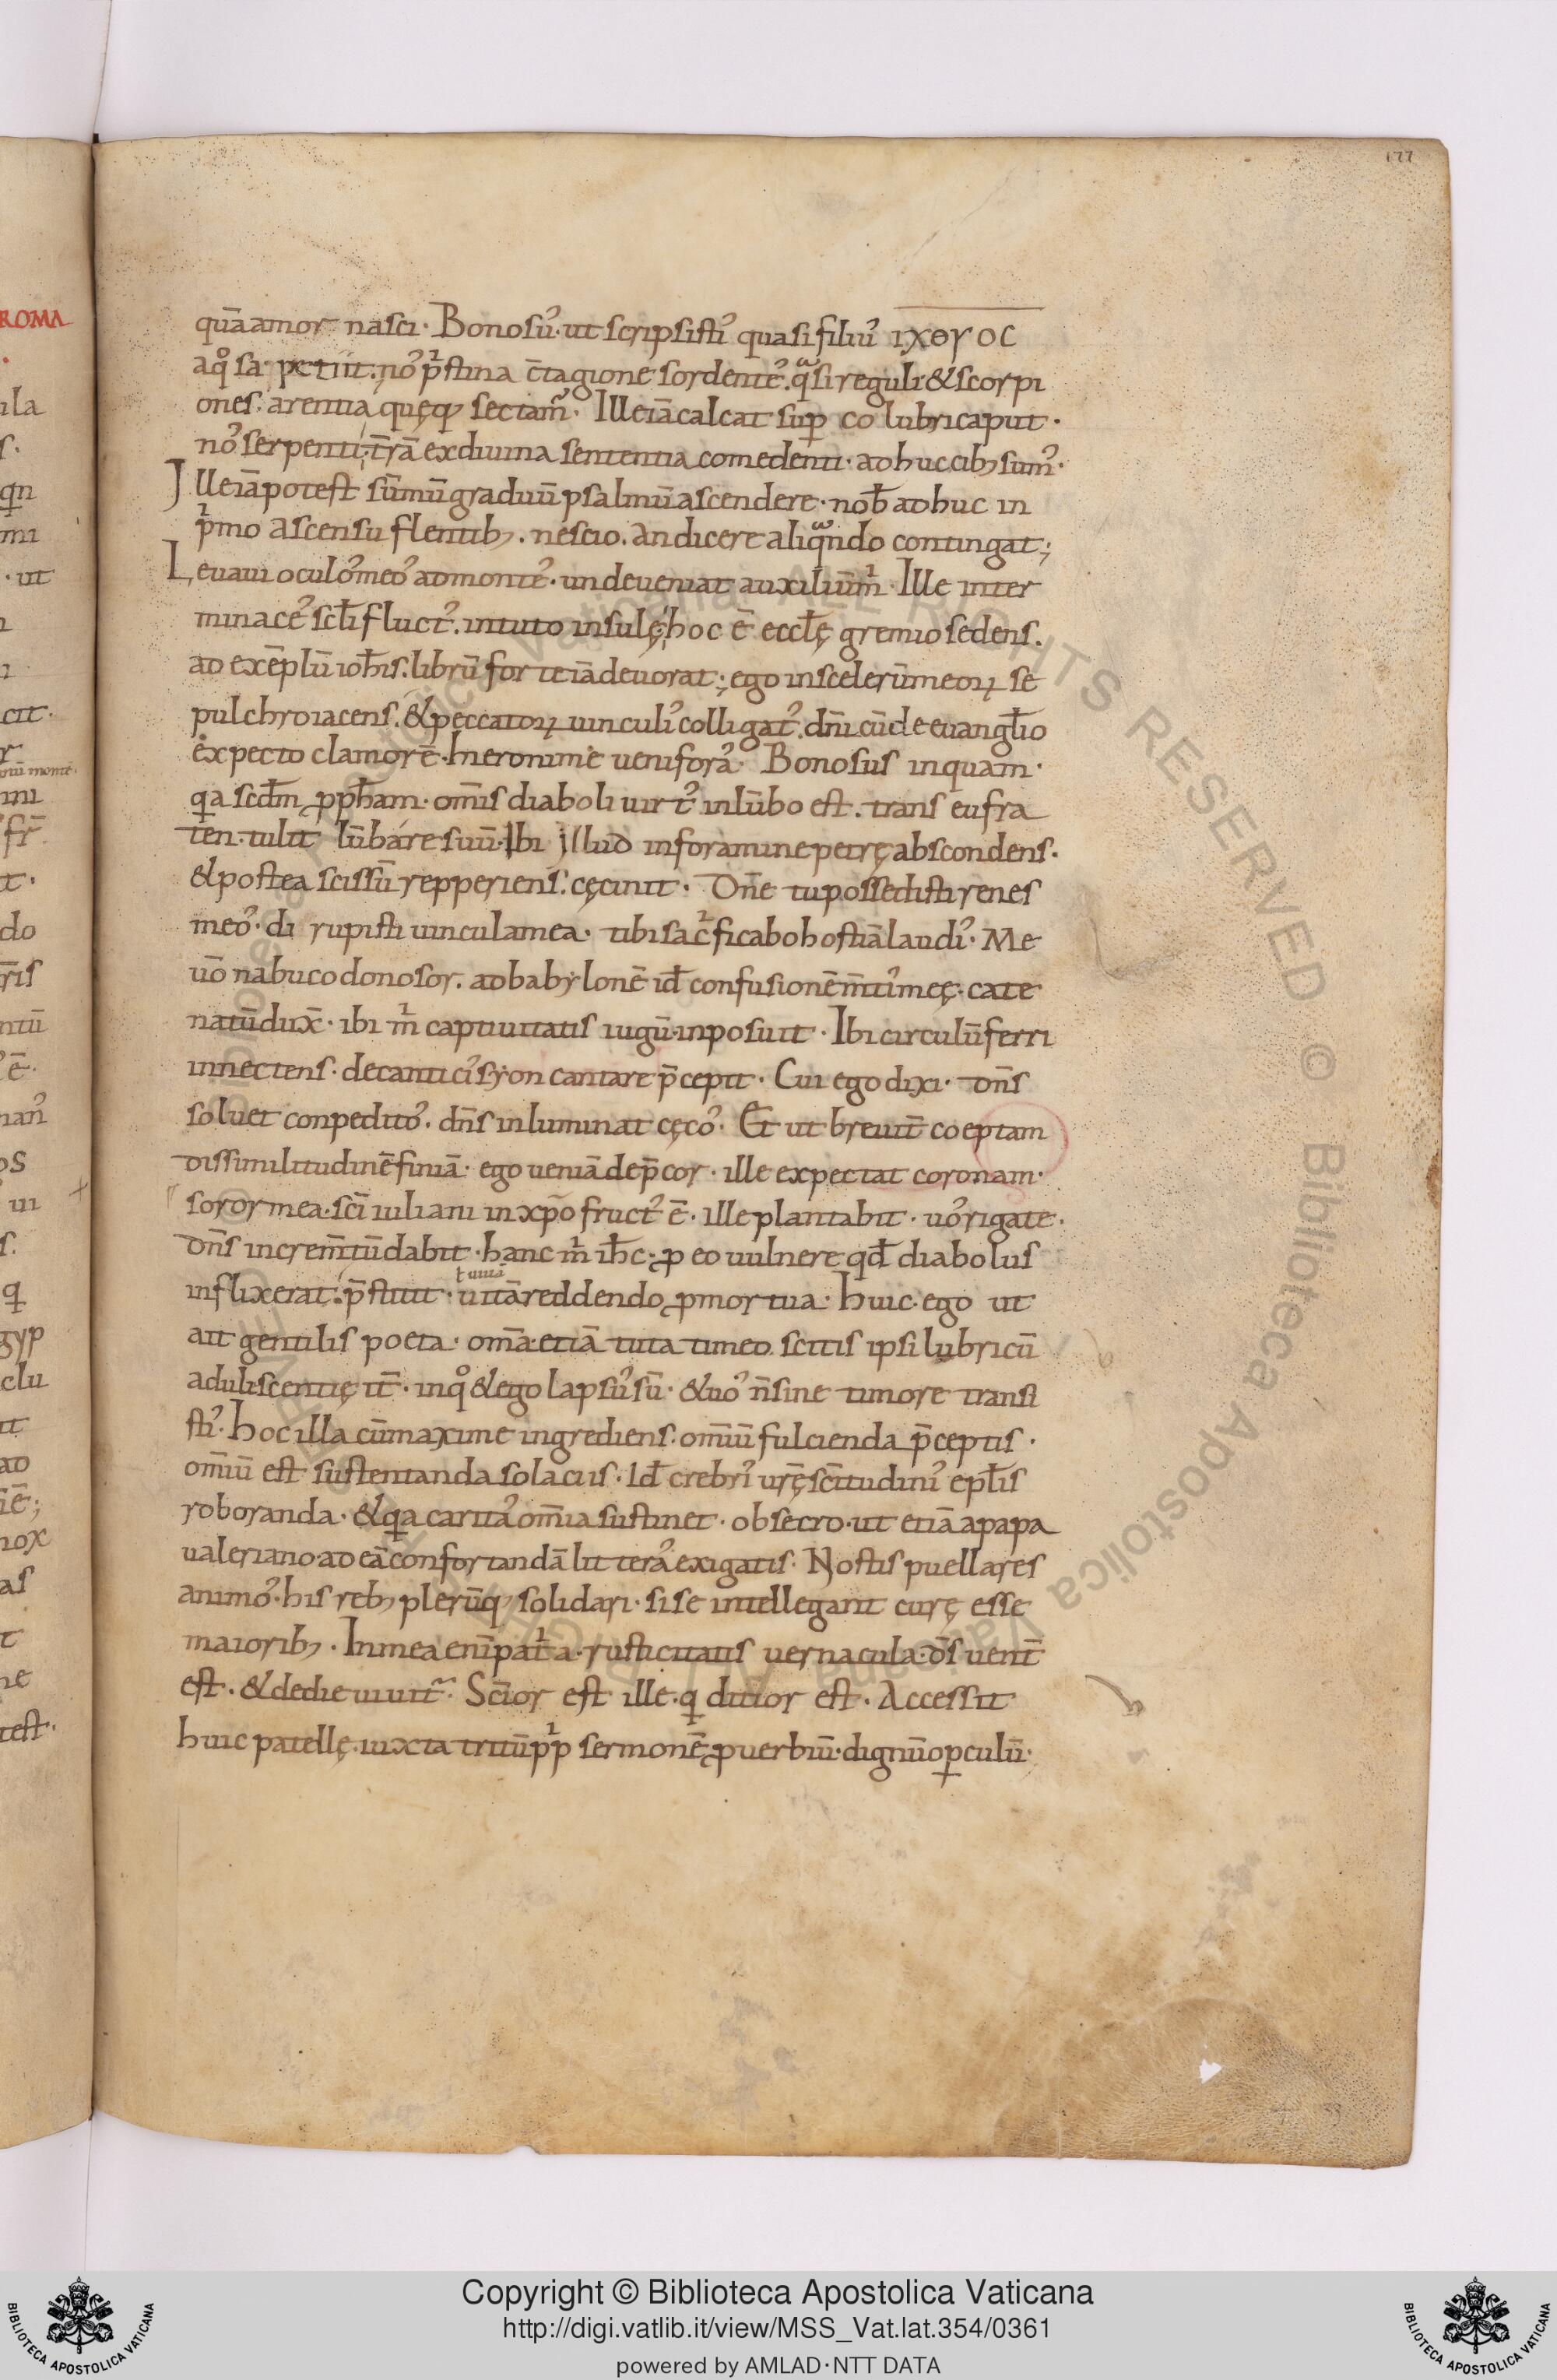 177
quā amor nasci. Bonosu᾽. ut scripsisti᾽ quasi filiu᾽ ιχθγος
aqͦsa petiit. no᾽ pͥstina c̄tagione sordente᾽. qͣsi reguli & scorpi
ones. arentia quęq; sectam᾽. Ille iā calcat sup colubri caput.
no᾽ serpenti. t̄rā ex diuina sententia comedenti. adhuc cib; sum᾽.
Ille iā potest sūmū graduū psalmū ascendere. nob̄ adhuc in
pͥmo ascensu flentib;. nescio. an dicere aliqͣndo contingat;
Leuaui oculo᾽ meo᾽ ad monte᾽. unde ueniat auxiliū mͥ. Ille inter
minace᾽ scl̄i fluct᾽. in tuto insulę hoc ē eccl̄ę gremio sedens.
ad exēplū ioh̄is. librū forte iā deuorat; ego in scelerū meoꝝ se
pulchro iacens. & peccatoꝝ uinculi᾽ colligat᾽. dn̄i cū de euangl̄io
expecto clamorē. hieronime ueni forā. Bonosus inquam.
qa scd̄m ꝓph̄am. om̄is diaboli uirt᾽ in lūbo est. trans eufra
ten. tulit lūbare suū. Ibi illud in foramine petrę abscondens.
& postea scissū repperiens. cęcinit. Dn̄e tu possedisti renes
meo᾽. dirupisti uincula mea. tibi sacͥficabo hostiā laudi᾽. Me
uō nabuco donosor. ad babylonē id̄ confusionē m̄ti᾽ meę. cate
natū dux̄. ibi mͥ captiuitatis iugū inposuit. Ibi circulū ferri
innectens. de cantici᾽ syon cantare p̄cepit. Cui ego dixi. dn̄s
soluet conpedito᾽. dn̄s inluminat cęco᾽. Et ut breuit̄ coeptam
dissimilitudinē finiā. ego ueniā dep̄cor. ille expectat coronam.
soror mea. sc̄i iuliani in xp̄o fruct᾽ ē. ille plantabit. uo᾽ rigate.
dn̄s increm̄tū dabit. hanc mͥ ih̄c. ꝓ eo uulnere qd̄ diabolus
ƚ uiuā
inflixerat. p̄stitit. uitā reddendo ꝓ mortua. huic. ego ut
ait gentilis poeta. om̄a etiā tuta timeo. scitis ipsi lubricū
aduliscentię it̄. inqͦ & ego lapsu᾽ sū. & uo᾽ n̄ sine timore transi
sti᾽. hoc illa cū maxime ingrediens. om̄iū fulcienda p̄ceptis.
om̄iū est sustentanda solaciis. Id̄ crebri᾽ ur̄ę sc̄itudini᾽ epl̄is
roboranda. & qa carita᾽ om̄ia sustinet. obsecro. ut etiā a papa
ualeriano. ad eā confortandā littera᾽ exigatis. Nostis puellares
animo᾽. his reb; plerūq; solidari. si se intellegant curę esse
maiorib;. In mea enī patͥa. rusticitatis uernacula. ds̄ uent̄
est. & de die uiuit᾽. Sc̄ior est ille. q ditior est. Accessit
huic patellę. iuxta tritū ppͥli sermonē ꝓuerbiū. dignū opculū.
Copyright © Biblioteca Apostolica Vaticana
http://digi.vatlib.it/view/MSS_Vat.lat.354/0361
powered by AMLAD·NTT DATA